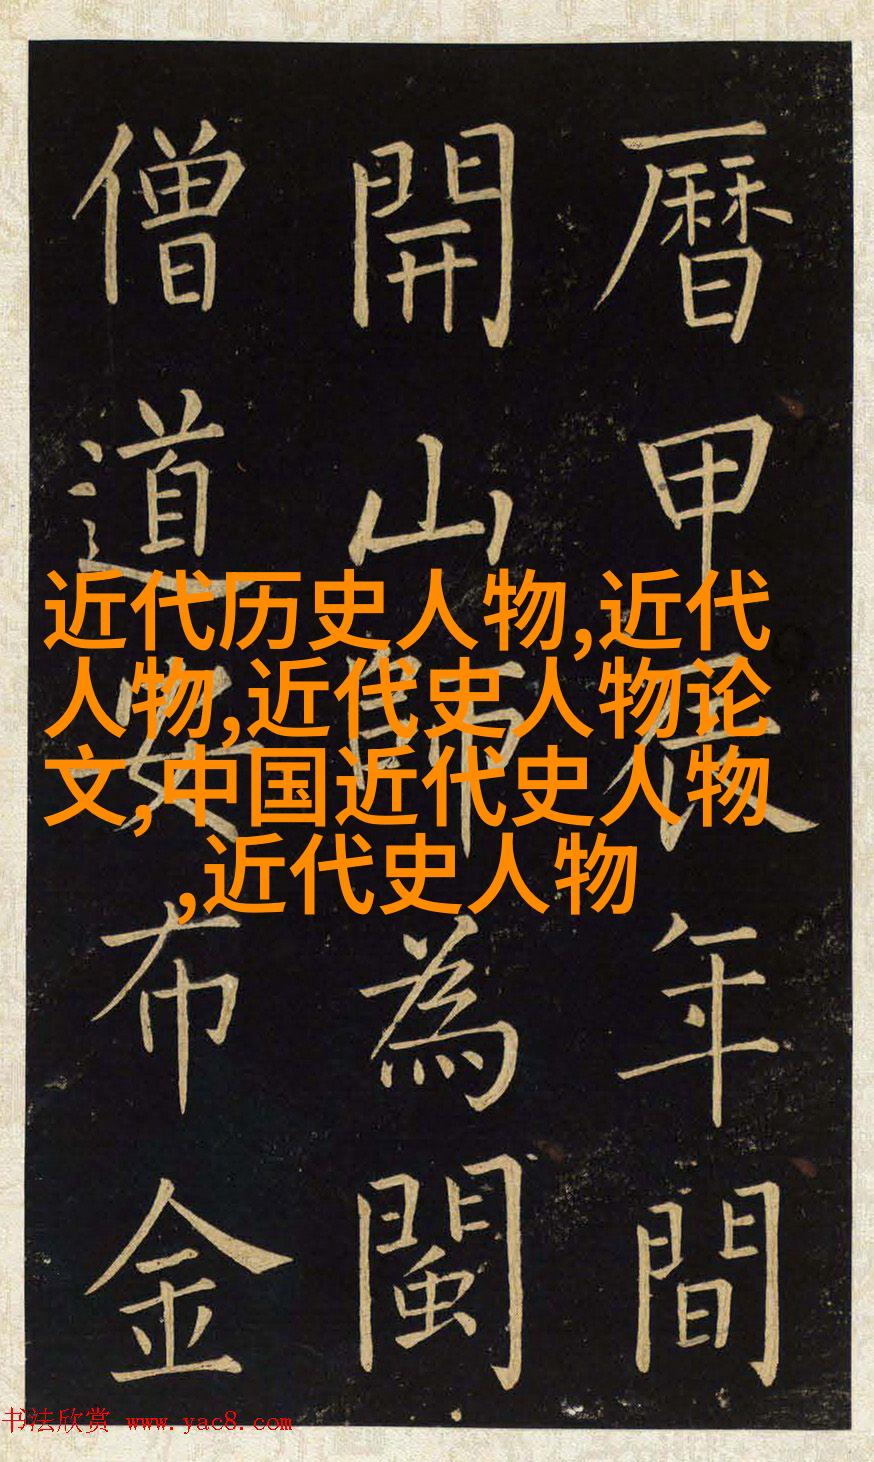 曆甲辰年間
開山師為閩
僧道安布金
近代历史人物,近代
人物,近代史人物论
文,中国近代史人物
,近代史人物
书法欣赏 www.yac8.com